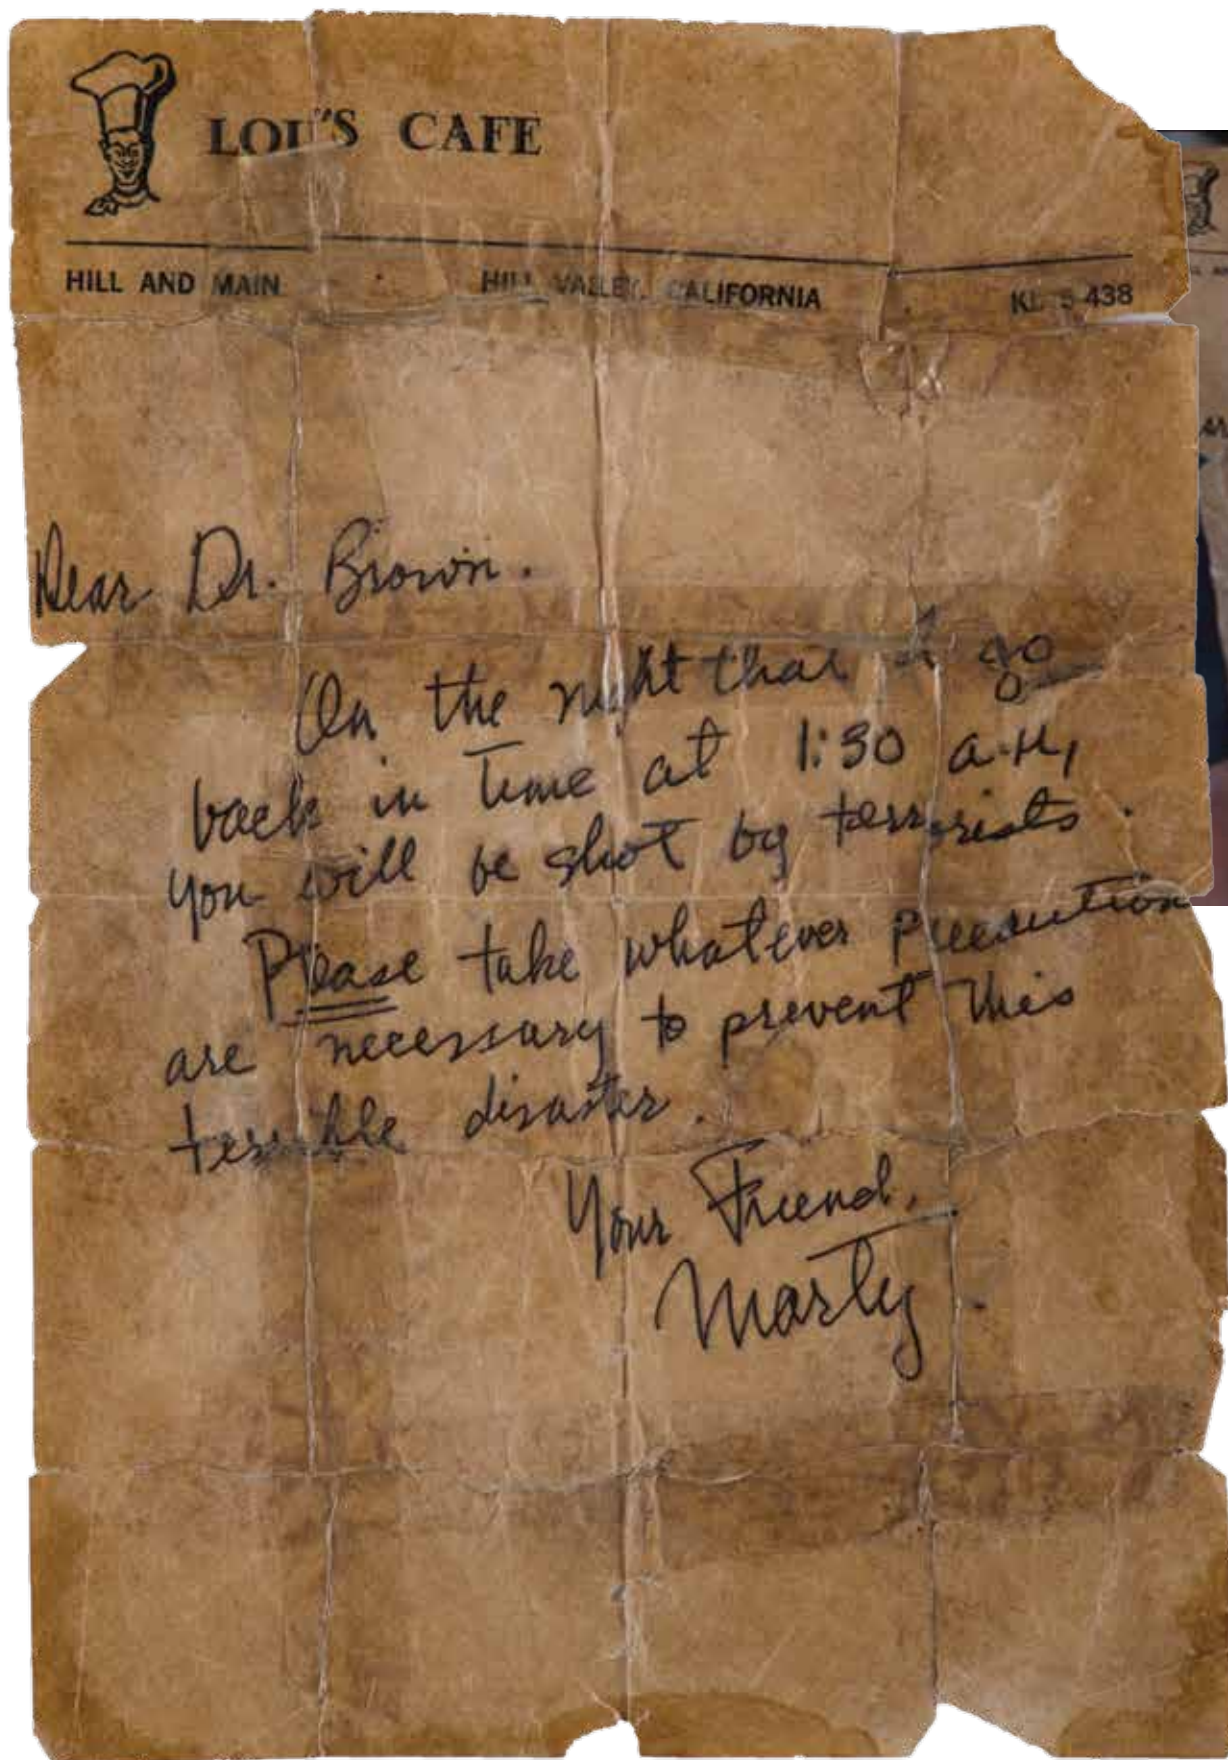 LOU'S CAFE
HILL AND MAIN HILL VALLEY, CALIFORNIA KL 5 438
Dear Dr. Brown.
On the night that I go
back in time at 1:30 a.m,
you will be shot by terrorists.
Please take whatever precaution
are necessary to prevent this
terrible disaster.
Your Friend,
Marty.